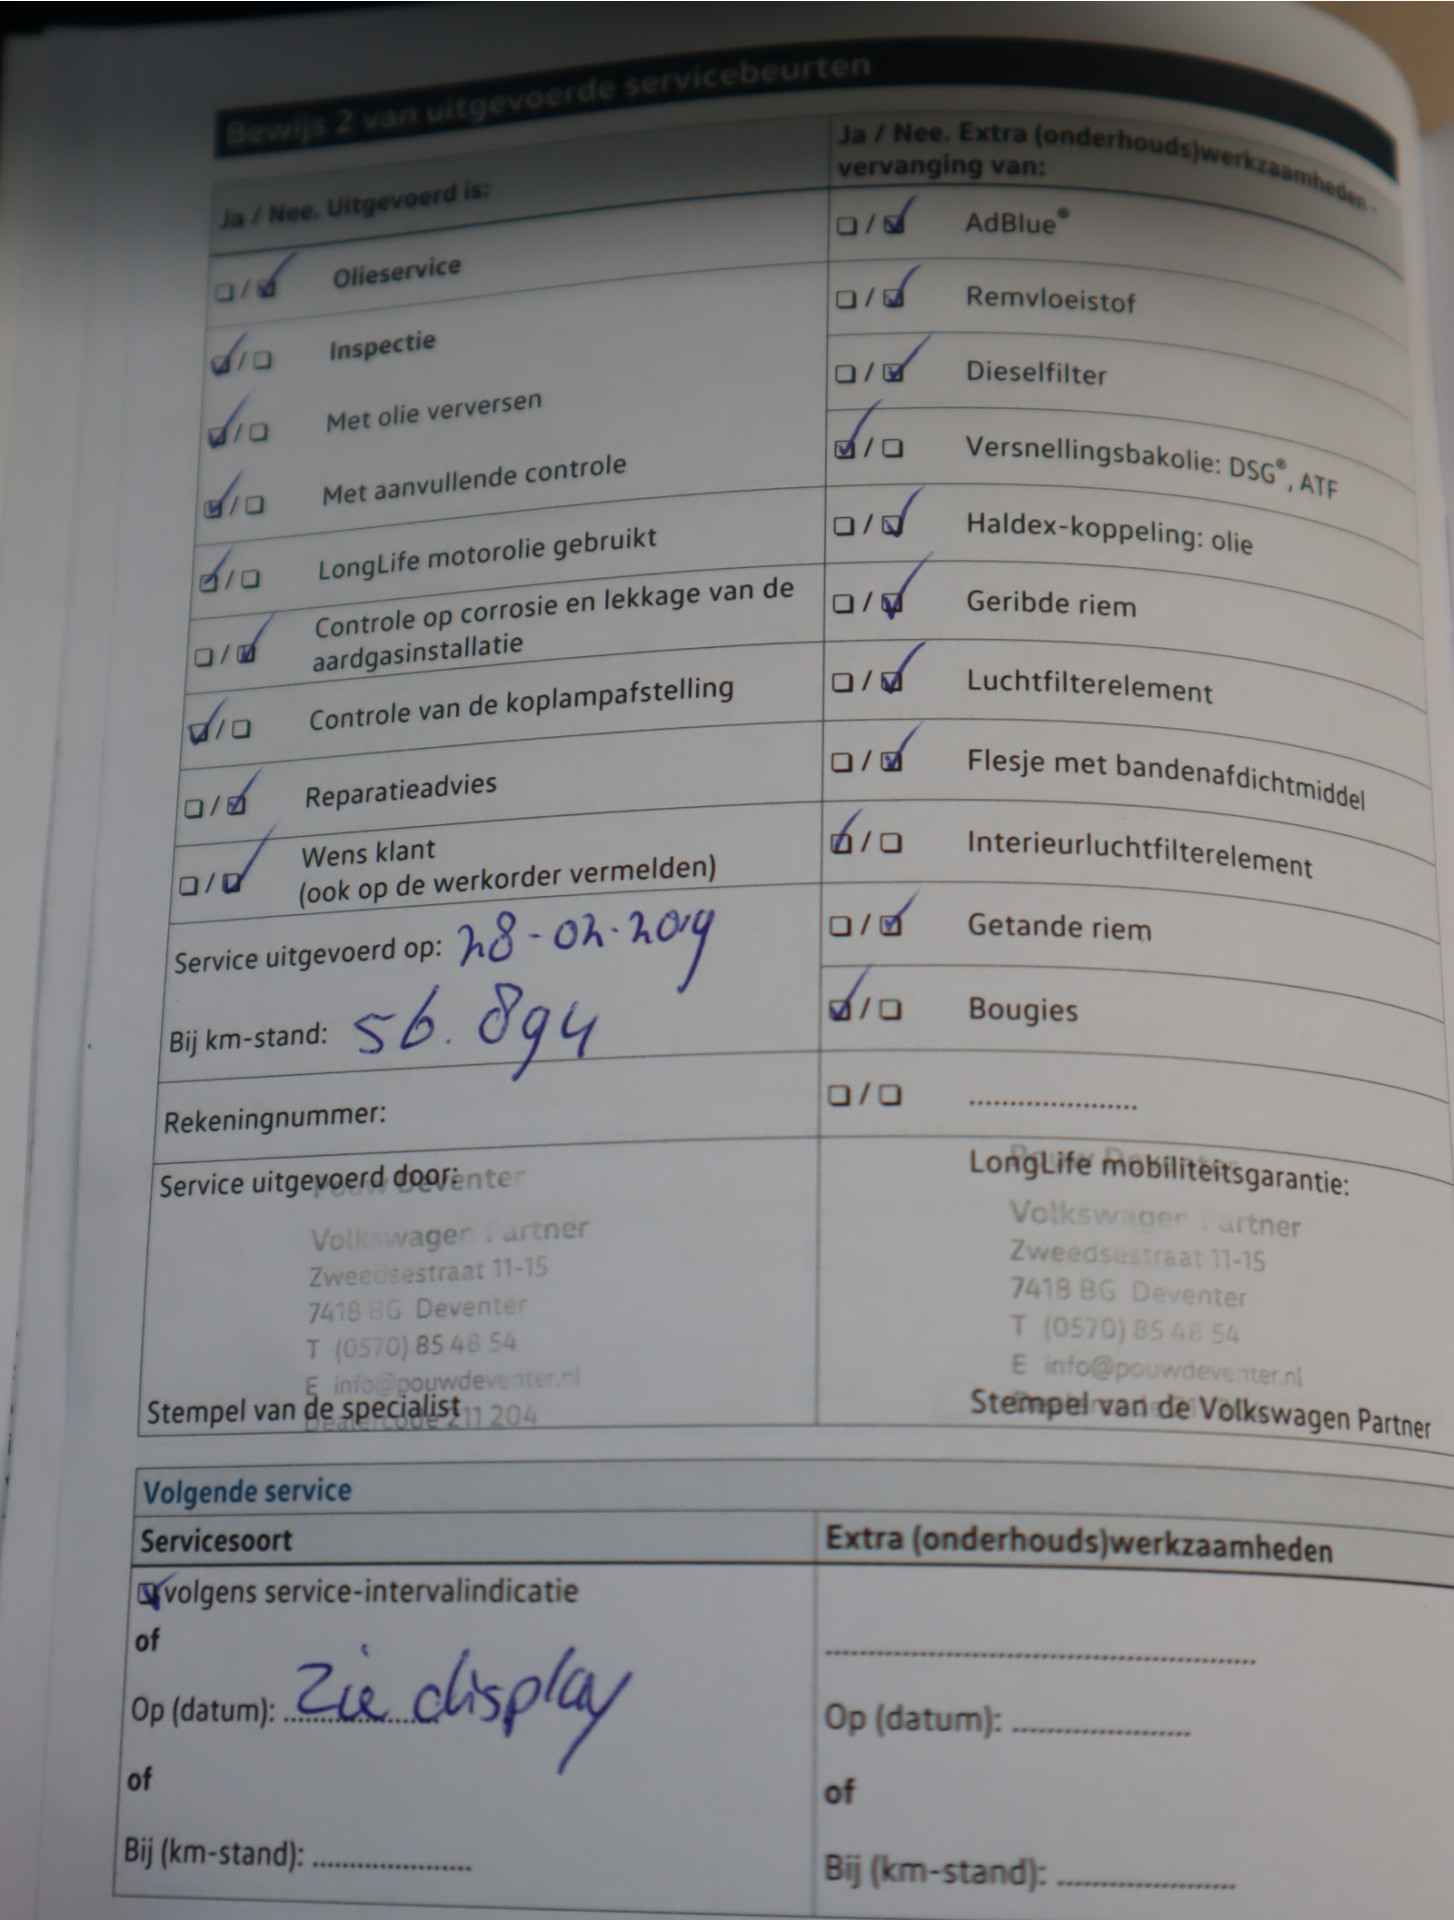 Bewijs 2 van uitgevoerde servicebeurten
Ja / Nee. Uitgevoerd is:
☐ / ☑ Olieservice
☑ / ☐ Inspectie
☑ / ☐ Met olie verversen
☑ / ☐ Met aanvullende controle
☑ / ☐ LongLife motorolie gebruikt
☐ / ☑ Controle op corrosie en lekkage van de
aardgasinstallatie
☑ / ☐ Controle van de koplampafstelling
☐ / ☑ Reparatieadvies
☐ / ☑ Wens klant
(ook op de werkorder vermelden)
Service uitgevoerd op: 28-02-2019
Bij km-stand: 56.894
Rekeningnummer:
Service uitgevoerd door:
Pouw Deventer
Volkswagen Partner
Zweedsestraat 11-15
7418 BG Deventer
T (0570) 85 48 54
E info@pouwdeventer.nl
Dealercode 211 204
Stempel van de specialist
Ja / Nee. Extra (onderhouds)werkzaamheden -
vervanging van:
☐ / ☑ AdBlue®
☐ / ☑ Remvloeistof
☐ / ☑ Dieselfilter
☑ / ☐ Versnellingsbakolie: DSG®, ATF
☐ / ☑ Haldex-koppeling: olie
☐ / ☑ Geribde riem
☐ / ☑ Luchtfilterelement
☐ / ☑ Flesje met bandenafdichtmiddel
☑ / ☐ Interieurluchtfilterelement
☐ / ☑ Getande riem
☑ / ☐ Bougies
☐ / ☐ .....................
LongLife mobiliteitsgarantie:
Pouw Deventer
Volkswagen Partner
Zweedsestraat 11-15
7418 BG Deventer
T (0570) 85 48 54
E info@pouwdeventer.nl
Stempel van de Volkswagen Partner
Volgende service
Servicesoort
☑ volgens service-intervalindicatie
of
Op (datum): zie display
of
Bij (km-stand): ....................
Extra (onderhouds)werkzaamheden
......................................................
Op (datum): ......................
of
Bij (km-stand): ......................